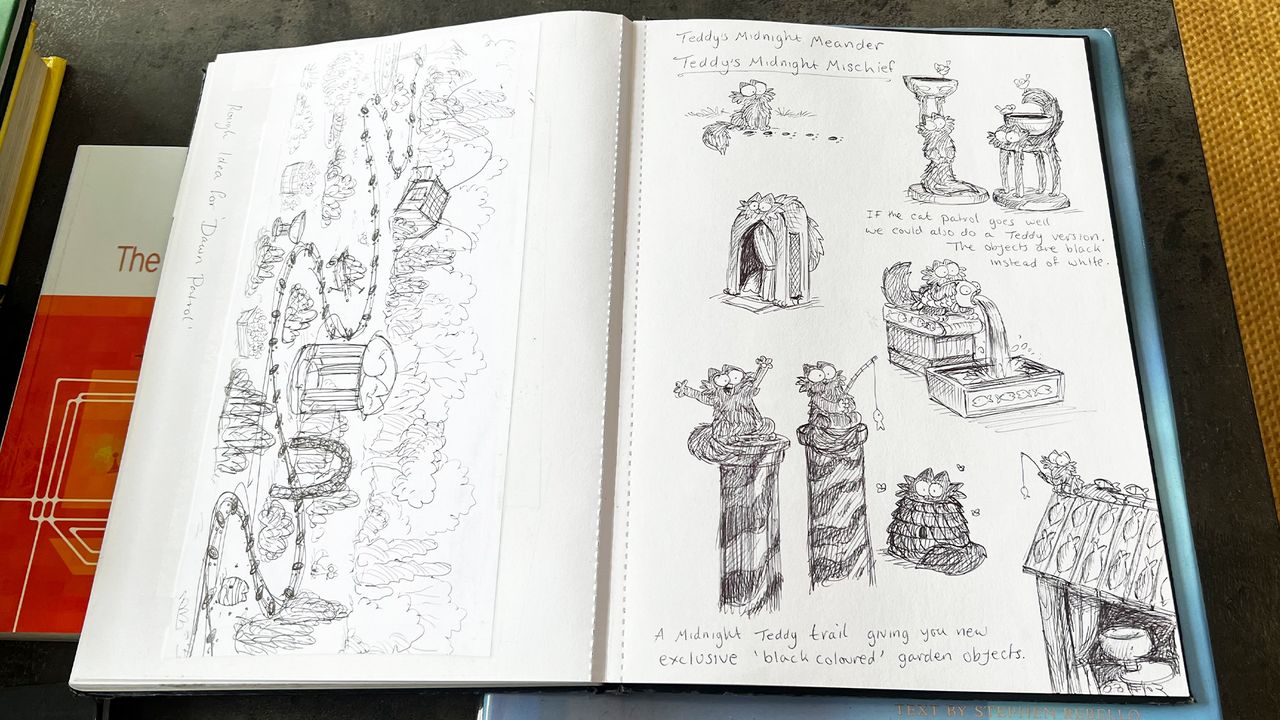 The
Rough Idea for 'Dawn Patrol'
Teddy's Midnight Meander
Teddy's Midnight Mischief
IF the cat patrol goes well
we could also do a Teddy version.
The objects are black
instead of white.
A Midnight Teddy trail giving you new
exclusive 'black coloured' garden objects.
TEXT BY STEPHEN REBELLO